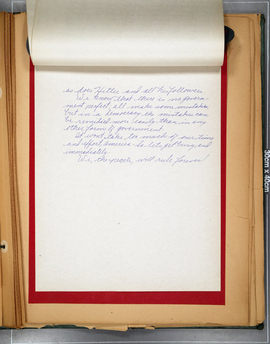 as does Hitler and all his followers.
We know that there is no govern-
ment perfect, all make some mistakes
but in a democracy the mistakes can
be remedied more easily than in any
other form of government.
It wont take too much of everything
and effort America so lets get busy and
immediately.
We, the people, will rule forever!
30cm x 40cm